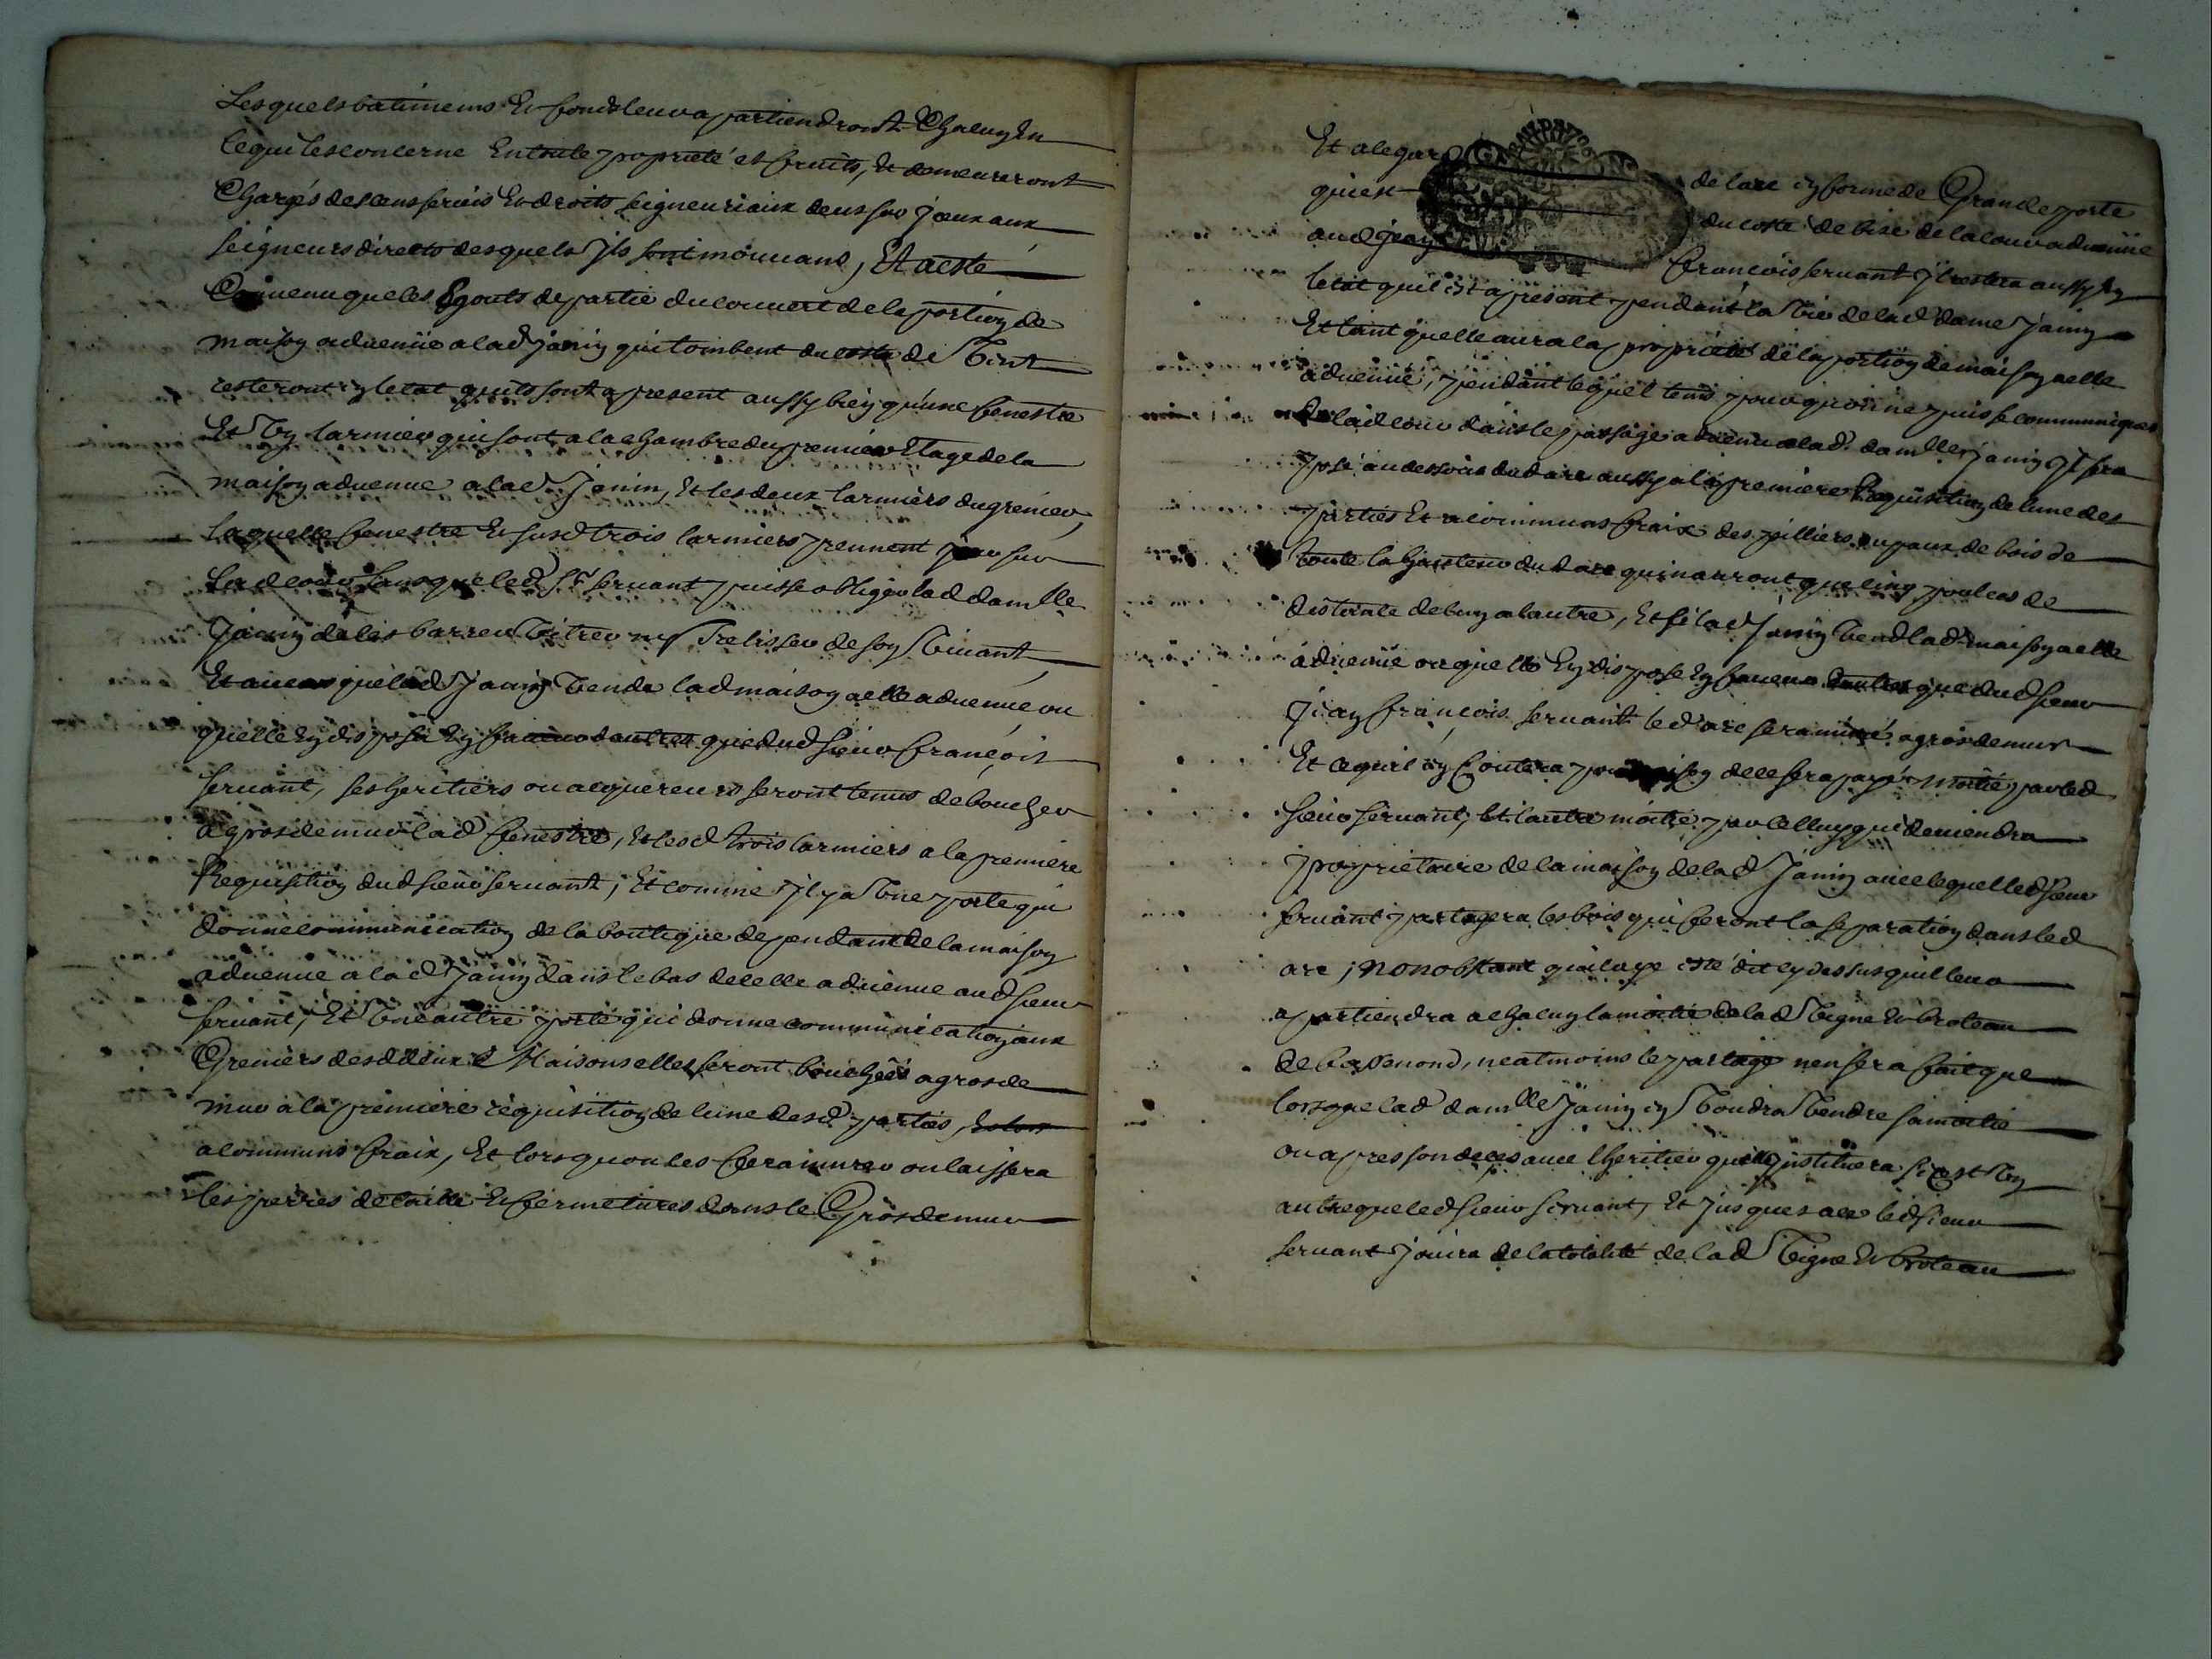 Lesquels batimens Et fonds leur apartiendront Chacun En
ce qui les concerne En toute proprieté et fruits, Et demeureront
Chargés des cens servis Et droits seigneuriaux deus sur iceux aux
seigneurs directs desquels Jls sont mouvans, Et a esté
Convenu que les Egouts de partie du couvert de la portion de
maison advenüe a lad Janin qui tombent du costé de Vent
resteront en letat quils sont a present aussy bien qu'une fenestre
Et Un larmier qui sont a la chambre du premier Etage de la
maison advenue a lad Janin, Et les deux larmiers du grenier,
Laquelle fenestre Et susd trois larmiers prennent jour sur
Lad cour sans que led Sr servant puisse obliger lad damlle
Janin de les barrer Vitrer ny Trelisser de son Vivant
Et au cas que lad Janin Vende lad maison a elle advenue ou
quelle En dispose En faveur dautres que dud sieur françois
servant, ses heritiers ou acquereurs seront tenus de boucher
a gros de mur lad fenestre, Et lesd trois larmiers a la premiere
Requisition dud sieur servant, Et comme Jl y a Une porte qui
donne communication de la boutique dependant de la maison
advenue a lad Janin dans le bas de celle advenue aud sieur
servant, Et Une autre porte qui donne communication aux
Greniers desd deux Maisons elles seront bouchées a gros de
mur a la premiere requisition de lune desd parties,
a communs fraix, Et lorsquon les fera murer on laissera
les pierres de taille Et fermetures dans le Gros de mur
Et a legard de larc en forme de Grande porte
qui est du costé de bise de la cour advenüe
aud Jean françois servant Jl restera aussy En
letat quil est a present pendant la Vie de lad dame Janin
Et tant quelle aura la proprieté de la portion de maison a elle
advenüe, pendant lequel tems pour quon ne puisse communiquer
de lad cour dans le passage advenu a lad. damlle Janin Jl sera
posé au dessous dud arc aussy a la premiere Requisition de lune des
parties Et a communs fraix des pilliers ou paux de bois de
toute la hauteur dud arc qui nauront que cinq poulces de
distance de lun a lautre, Et si lad Janin Vend lad maison a elle
advenüe ou quelle En dispose En faveur dautres que dud sieur
Jean françois servant led arc sera muré a gros de mur
Et ce quil en Coutera pour raison de ce sera payé moitié par led
sieur servant, Et lautre moitié par celluy qui deviendra
proprietaire de la maison de lad Janin avec lequel led sieur
servant partagera les bois qui feront la separation dans led
arc; Nonobstant quil aye esté dit cy dessus quil leur
apartiendra a chacun la moitié de lad Vigne Et broteau
de neatmoins le partage nen sera fait que
lorsque lad damlle Janin en Voudra Vendre sa moitié
ou apres son deces avec lheritier quelle instituera si cest Un
autre que led sieur servant, Et jusques a ce led sieur
servant jouira de la totalité de lad Vigne Et broteau